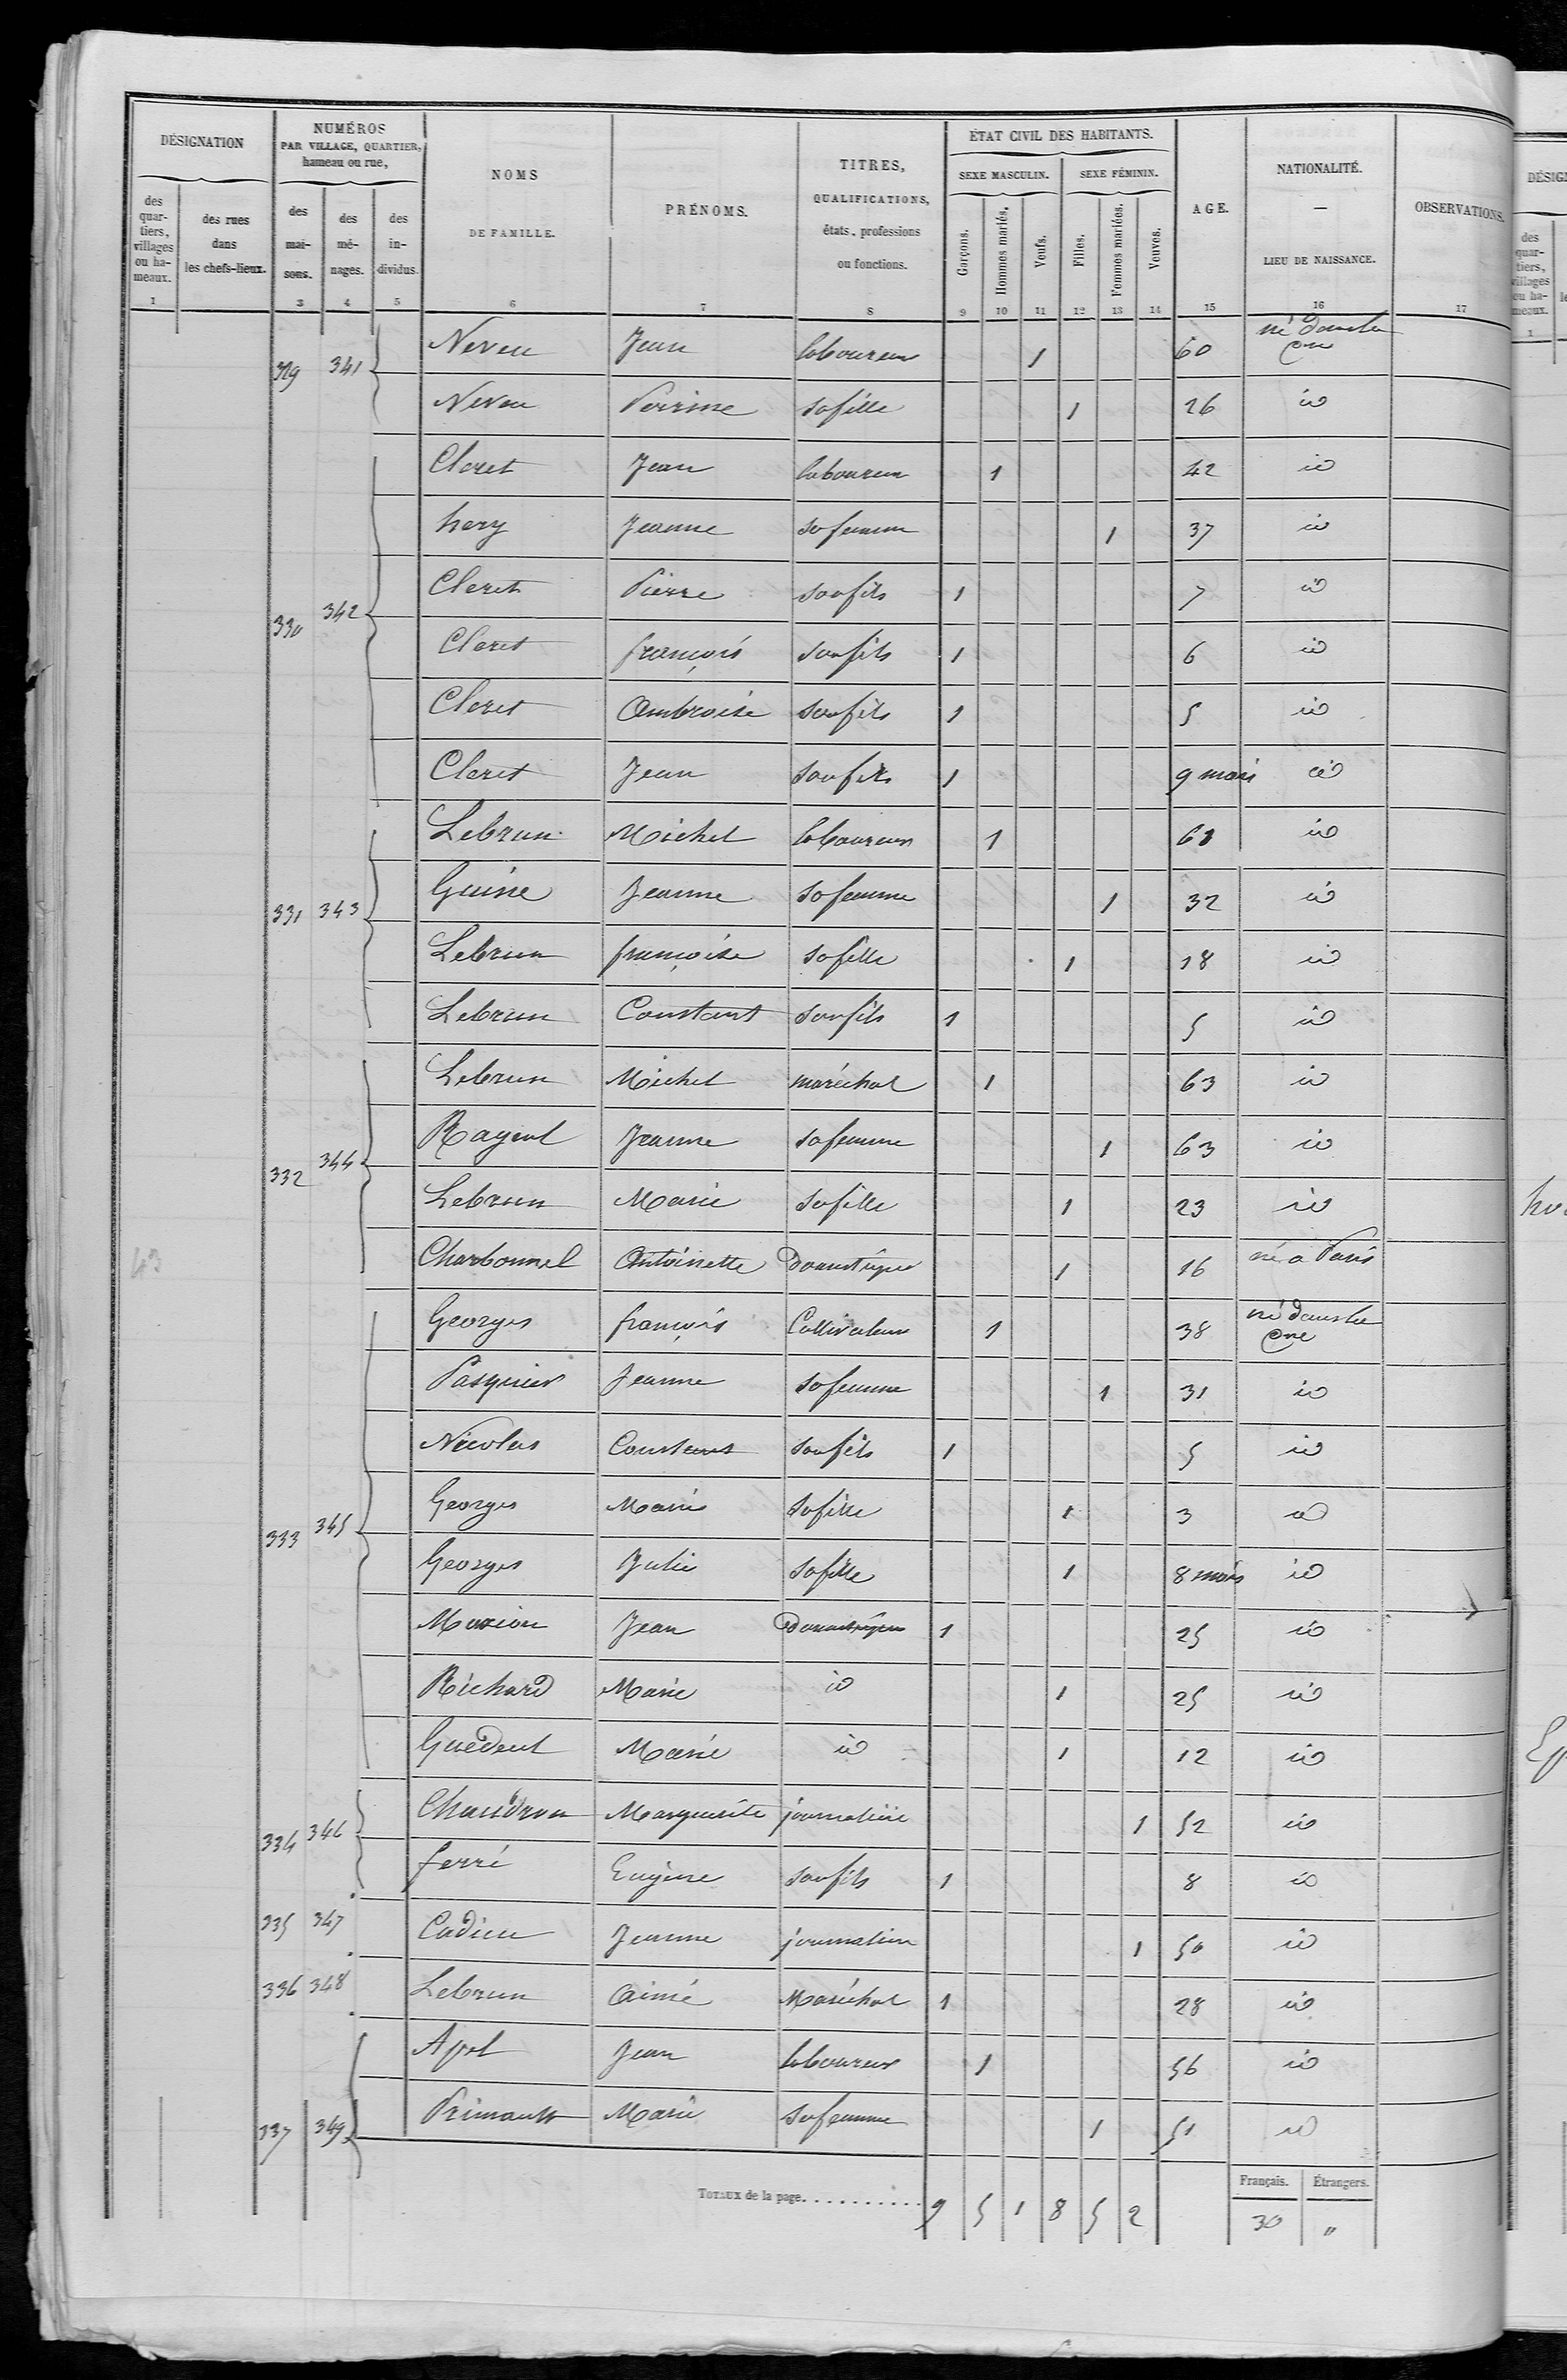 DÉSIGNATION
NUMÉROS
PAR VILLAGE, QUARTIER,
hameau ou rue,
NOMS
DE FAMILLE.
PRÉNOMS.
TITRES,
QUALIFICATIONS,
états, professions
ou fonctions.
ÉTAT CIVIL DES HABITANTS.
SEXE MASCULIN. SEXE FÉMININ.
AGE.
NATIONALITÉ.
—
LIEU DE NAISSANCE.
OBSERVATIONS.
des quartiers, villages ou hameaux.
des rues dans les chefs-lieux.
des maisons.
des ménages.
des individus.
Garçons. Hommes mariés. Veufs. Filles. Femmes mariées. Veuves.
1 3 4 5 6 7 8 9 10 11 12 13 14 15 16 17
329 341 Neveu Jean laboureur 1 60 né dans la cne
Neveu Perrine sa fille 1 26 id
Cleret Jean laboureur 1 42 id
hery Jeanne sa femme 1 37 id
Cleret Pierre son fils 1 7 id
330 342 Cleret françois son fils 1 6 id
Cleret Ambroise son fils 1 5 id
Cleret Jean son fils 1 9 mois id
Lebrun Michel laboureur 1 61 id
331 343 Guine Jeanne sa femme 1 32 id
Lebrun françoise sa fille 1 18 id
Lebrun Constant son fils 1 5 id
Lebrun Michel maréchal 1 63 id
332 344 Rageul Jeanne sa femme 1 63 id
Lebrun Marie sa fille 1 23 id
Charbonnel Antoinette domestique 1 16 né a Paris
43
Georges françois Cultivateur 1 38 né dans la cne
Pasquier Jeanne sa femme 1 31 id
Nicolas Constant son fils 1 5 id
333 345 Georges Marie sa fille 1 3 id
Georges Julie sa fille 1 8 mois id
Marion Jean domestique 1 25 id
Richard Marie id 1 25 id
Guedeul Marie id 1 12 id
334 346 Chaudron Marguerite journalière 1 52 id
ferré Eugène son fils 1 8 id
335 347 Cadieu Jeanne journalière 1 50 id
336 348 Lebrun Aimé Maréchal 1 28 id
Apel Jean laboureur 1 56 id
337 349 Primault Marie sa femme 1 51 id
Totaux de la page 9 5 1 8 5 2
Français. Étrangers.
30 "